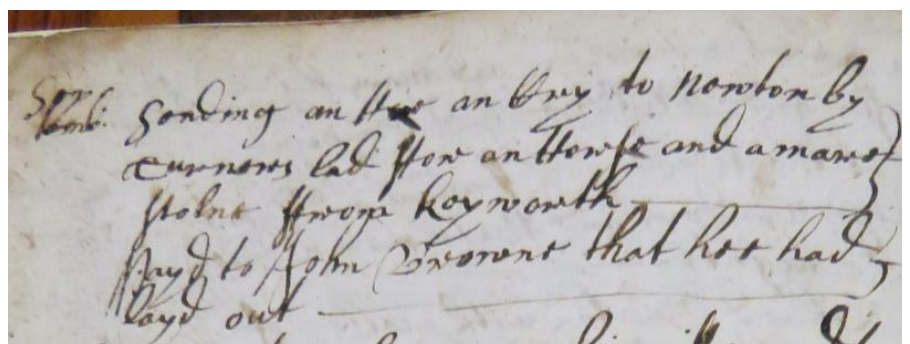 Sending an Hue an Cry to Newton by
Turners lad ffor an Horse and a mare
stolne ffrom Keyworth
payd to John Browne that hee had
layd out